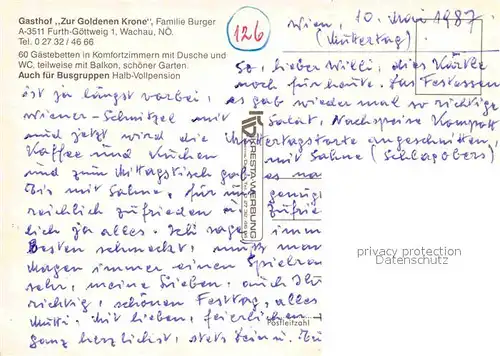 Gasthof „Zur Goldenen Krone", Familie Burger
A-3511 Furth-Göttweig 1, Wachau, NÖ.
Tel. 0 27 32 / 46 66
60 Gästebetten in Komfortzimmern mit Dusche und
WC, teilweise mit Balkon, schöner Garten.
Auch für Busgruppen Halb-Vollpension
126
Wien, 10. Mai 1987
(Muttertag)
So, lieber Willi, dies Kärtle
noch für heute. Das Festessen
ist ja längst vorbei, es gab wieder mal so richtige
Wiener-Schnitzel mit Salat. Nachspeise Kompott
und jetzt wird die Muttertagstorte angeschnitten,
Kaffee und Kuchen mit Sahne (Schlagobers)
und zum Mittagstisch gab es
mit Sahne, für
reichlich zufrieden
lich ja alles. Ich sage imm
Besten schmeckt, muss man
Magen immer einen Spielraum
sehr, meine Lieben, auch Ihr
richtig, schönen Festtag, alles
Mutti. Mit lieben, feierlichen
ganz herzlichst, stets
KRESTA-WERBUNG
Postleitzahl
privacy protection
Datenschutz